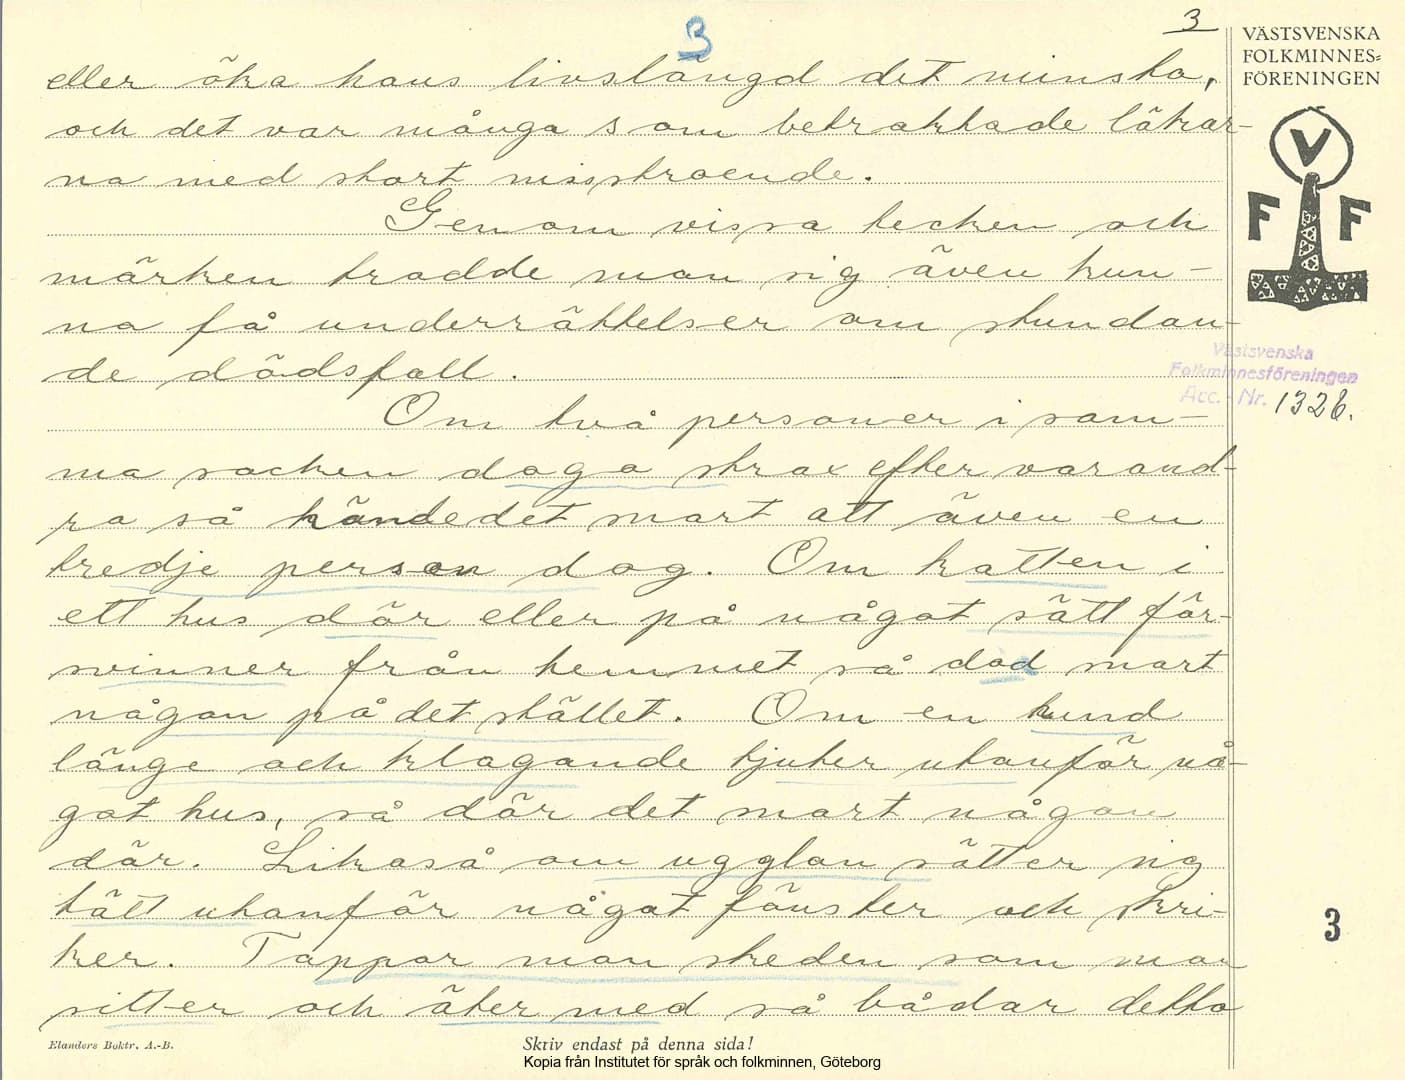 3
3
VÄSTSVENSKA
FOLKMINNES=
FÖRENINGEN
eller öka hans livslängd det minsta,
och det var många som betraktade läkar-
na med stort misstroende.
Genom vissa tecken och
märken trodde man sig även kun-
na få underrättelser om stundan-
de dödsfall.
Om två personer i sam-
ma socken dogo strax efter varand-
ra så hände det snart att även en
tredje person dog. Om katten i
ett hus dör eller på något sätt för-
svinner från hemmet så död snart
någon på det stället. Om en hund
länge och klagande tjuter utanför nå-
got hus, så dör det snart någon
där. Likaså om ugglan sätter sig
tätt utanför något fönster och skri-
ker. Tappar man skeden som man
sitter och äter med så bådar detta
V
F F
Västsvenska
Folkminnesföreningen
Acc. - Nr. 1326.
3
Elanders Boktr. A.-B.
Skriv endast på denna sida!
Kopia från Institutet för språk och folkminnen, Göteborg